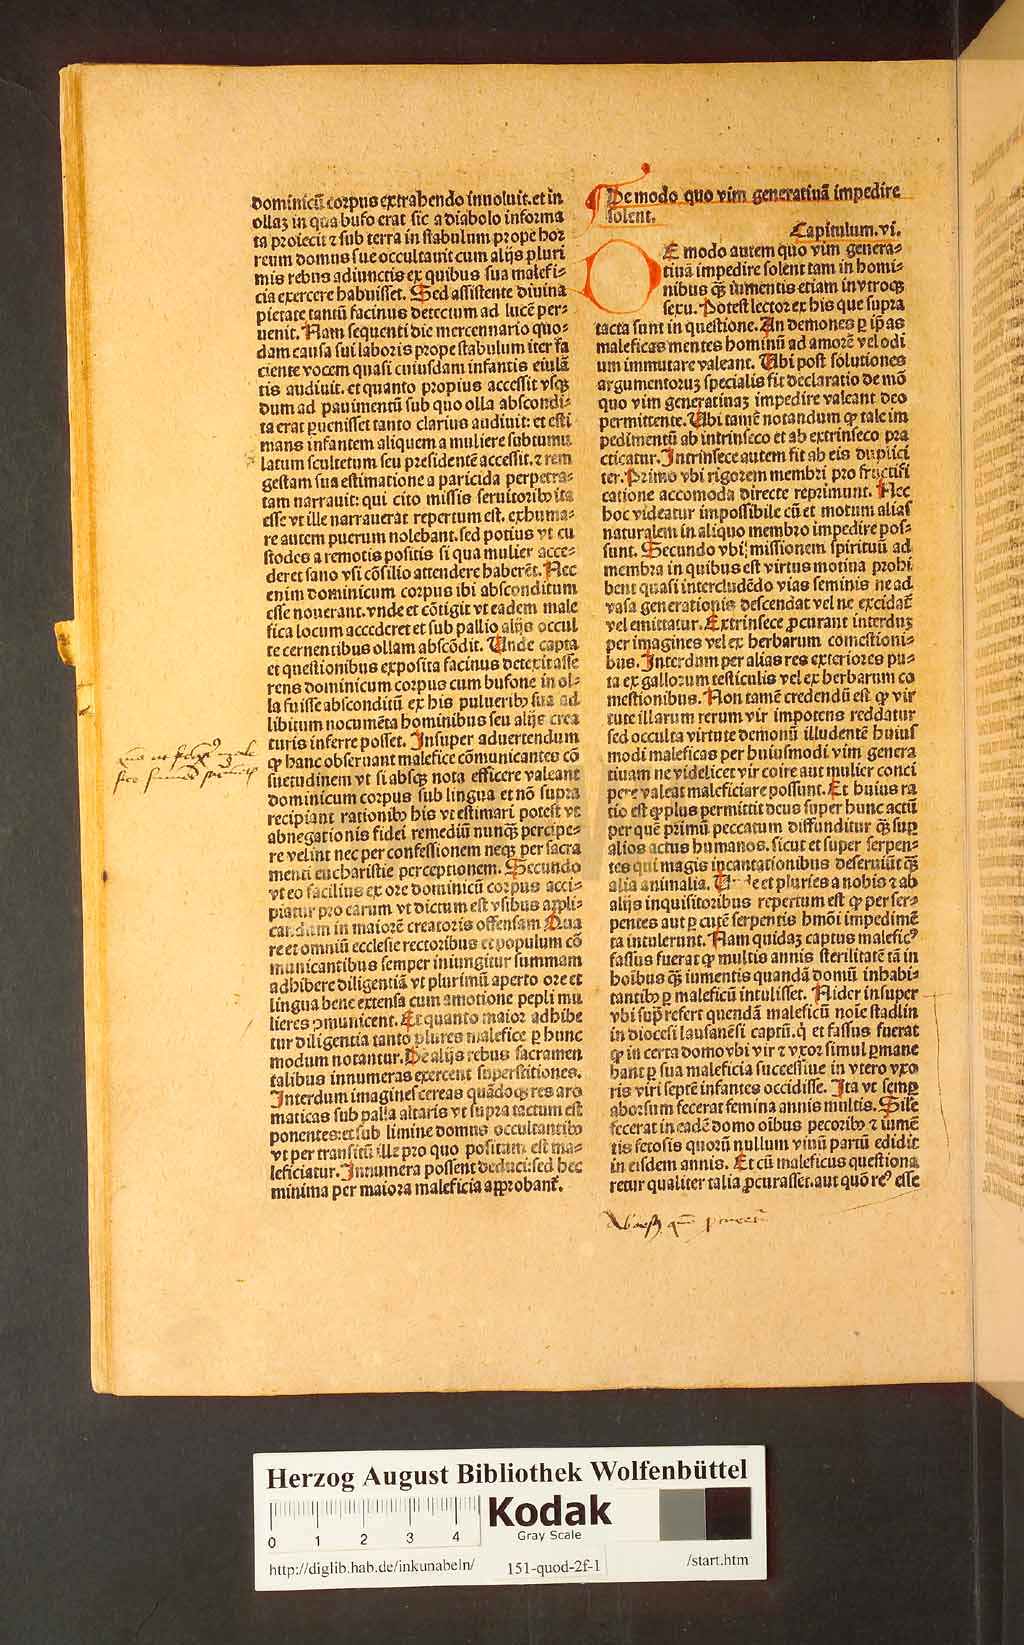 dominicū corpus extrahendo inuoluit. et in
ollaꝫ in qua bufo erat sic a diabolo informa
ta proiecit ⁊ sub terra in stabulum prope hor
reum domus sue occultauit cum alijs pluri
mis rebus adiunctis ex quibus sua malefi⸗
cia exercere habuisset. Sed assistente diuina
pietate tantū facinus detectum ad lucē per⸗
uenit. Nam sequenti die mercennario quo⸗
dam causa sui laboris prope stabulum iter fa
ciente vocem quasi cuiusdam infantis eiulā
tis audiuit. et quanto propius accessit vsqꝫ
dum ad pauimentū sub quo olla abscondi⸗
ta erat ꝑuenisset tanto clarius audiuit: et esti
mans infantem aliquem a muliere subtumu
latum scultetum seu presidentē accessit. ⁊ rem
gestam sua estimatione a paricida perpetra⸗
tam narrauit: qui cito missis seruitoribꝰ ita
esse vt ille narrauerat repertum est. exhuma⸗
re autem puerum nolebant. sed potius vt cu
stodes a remotis positis si qua mulier acce⸗
deret sano vsi cōsilio attendere haberēt. Nec
enim dominicum corpus ibi absconditum
esse nouerant. vnde et cōtigit vt eadem male
fica locum accederet et sub pallio alijs occul
te cernentibus ollam abscōdit. Unde capta
et questionibus exposita facinus detexit asse
rens dominicum corpus cum bufone in ol⸗
la fuisse absconditū ex his pulueribꝰ sua ad
libitum nocumēta hominibus seu alijs crea
turis inferre posset. Insuper aduertendum
ꝙ hanc obseruant malefice cōmunicantes cō
suetudinem vt si absqꝫ nota efficere valeant
dominicum corpus sub lingua et nō supra
recipiant rationibꝰ his vt estimari potest vt
abnegationis fidei remediū nunqꝫ percipe⸗
re velint nec per confessionem neqꝫ per sacra
menti eucharistie perceptionem. Secundo
vt eo facilius ex ore dominicū corpus acci⸗
piatur pro earum vt dictum est vsibus appli⸗
candum in maiorē creatoris offensam. Qua
re et omniū ecclesie rectoribus et populum cō
municantibus semper iniungitur summam
adhibere diligentiā vt plurimū aperto ore et
lingua bene extensa cum amotione pepli mu
lieres ꝯmunicent. Et quanto maior adhibe
tur diligentia tanto plures malefice ꝑ hunc
modum notantur. De alijs rebus sacramen
talibus innumeras exercent superstitiones.
Interdum imagines cereas quādoqꝫ res aro
maticas sub palla altaris vt supra tactum est
ponentes: et sub limine domus occultantibꝰ
vt per transitū ille pro quo positam est ma⸗
leficiatur. Innumera possent deduci: sed hec
minima per maiora maleficia approbant᷑.
De modo quo vim generatiuā impedire
solent.
Capitulum. vi.
E modo autem quo vim genera⸗
tiuā impedire solent tam in homi⸗
nibus qꝫ iumentis etiam in vtroqꝫ
sexu. Potest lector ex his que supra
tacta sunt in questione. An demones ꝑ ip̄as
maleficas mentes hominū ad amorē vel odi
um immutare valeant. Ubi post solutiones
argumentoruꝫ specialis fit declaratio de mō
quo vim generatiuaꝫ impedire valeant deo
permittente. Ubi tamē notandum ꝙ tale im
pedimentū ab intrinseco et ab extrinseco pra
cticatur. Intrinsece autem fit ab eis duplici
ter. Primo vbi rigorem membri pro fructifi
catione accomoda directe reprimunt. Nec
hoc videatur impossibile cū et motum alias
naturalem in aliquo membro impedire pos⸗
sunt. Secundo vbi missionem spirituū ad
membra in quibus est virtus motiua prohi
bent quasi intercludēdo vias seminis ne ad
vasa generationis descendat vel ne excidat᷑
vel emittatur. Extrinsece ꝓcurant interduꝫ
per imagines vel ex herbarum comestioni⸗
bus. Interdum per alias res exteriores pu⸗
ta ex gallorum testiculis vel ex herbarum co
mestionibus. Non tamē credendū est ꝙ vir
tute illarum rerum vir impotens reddatur
sed occulta virtute demonū illudentē huius
modi maleficas per huiusmodi vim genera
tiuam ne videlicet vir coire aut mulier conci
pere valeat maleficiare possunt. Et huius ra
tio est ꝙ plus permittit deus super hunc actū
per quē primū peccatum diffunditur qꝫ suꝑ
alios actus humanos. sicut et super serpen⸗
tes qui magis incantationibus deseruiūt qꝫ
alia animalia. Unde et pluries a nobis ⁊ ab
alijs inquisitoribus repertum est ꝙ per ser⸗
pentes aut ꝑ cutē serpentis hmōi impedimē
ta intulerunt. Nam quidaꝫ captus malefic⁹
fassus fuerat ꝙ multis annis sterilitatē tā in
hoībus qꝫ iumentis quandā domū inhabi⸗
tantibꝰ ꝑ maleficū intulisset. Nider insuper
vbi sup̄ refert quendā maleficū noīe stadlin
in diocesi lausanēsi captū. q̇ et fassus fuerat
ꝙ in certa domo vbi vir ⁊ vxor simul ꝑmane
bant ꝑ sua maleficia successiue in vtero vxo
ris viri septē infantes occidisse. Ita vt semꝑ
aborsum fecerat femina annis multis. Sile
fecerat in eadē domo oībus pecoribꝰ ⁊ iumē
tis fetosis quorū nullum viuū partū edidit
in eisdem annis. Et cū maleficus questiona
retur qualiter talia ꝓcurasset. aut quō re⁹ esse
Herzog August Bibliothek Wolfenbüttel
0 1 2 3 4
Kodak
Gray Scale
http://diglib.hab.de/inkunabeln/
151-quod-2f-1
/start.htm